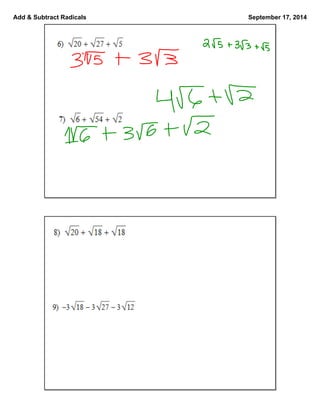 Add & Subtract Radicals September 17, 2014
6) √20 + √27 + √5 2√5 + 3√3 + √5
3√5 + 3√3
4√6 + √2
7) √6 + √54 + √2
1√6 + 3√6 + √2
8) √20 + √18 + √18
9) −3√18 − 3√27 − 3√12